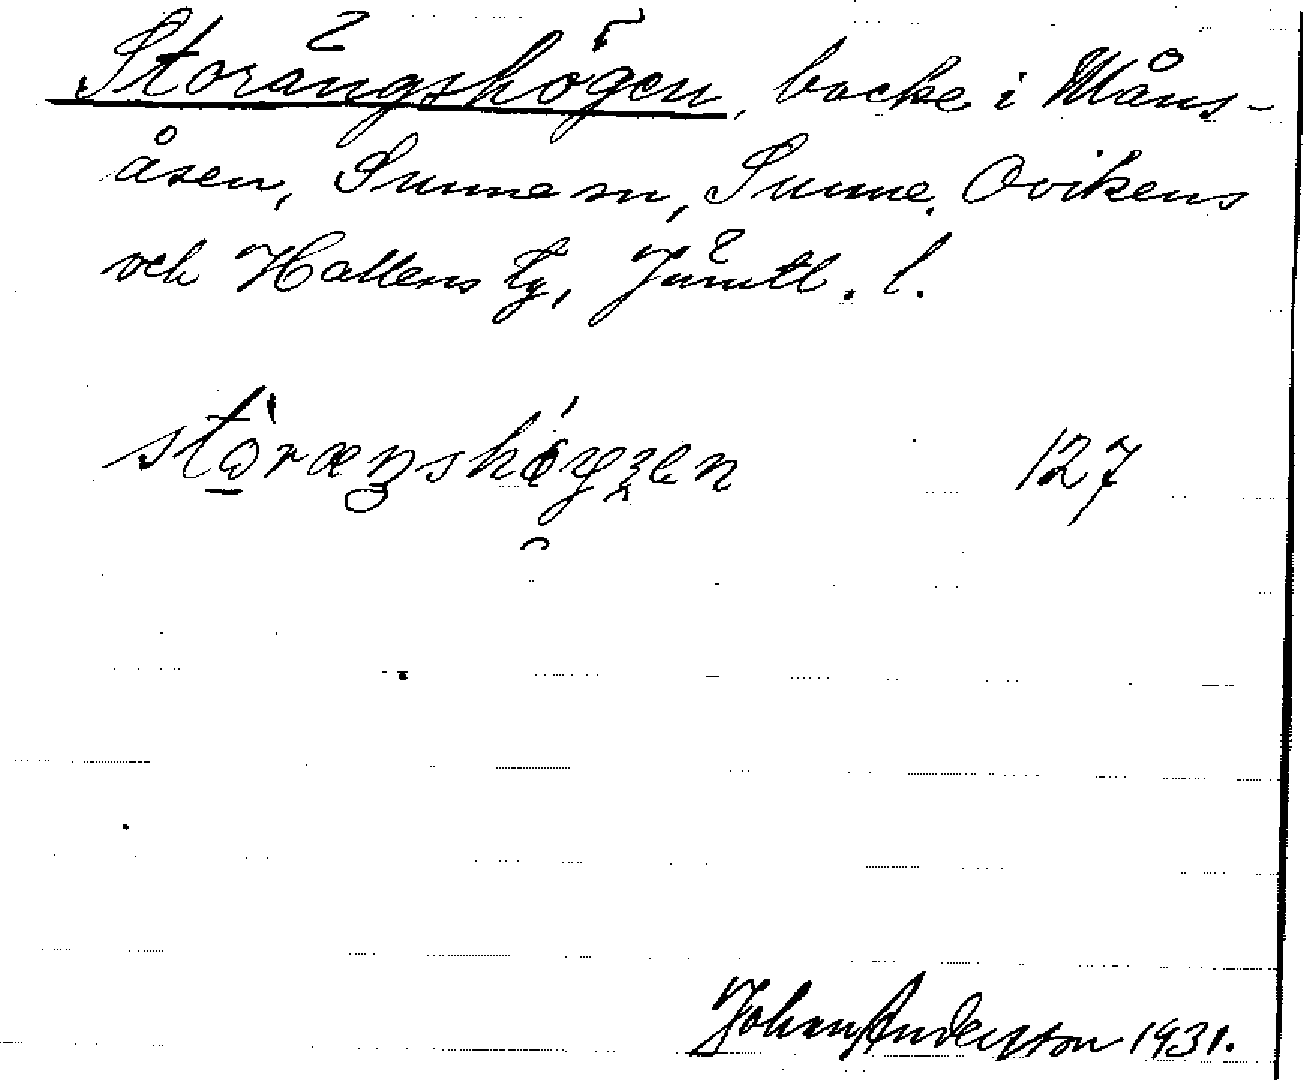 Storängshögen, backe i Måns-
åsen, Sunne sn, Sunne, Ovikens
och Hallens tg, Jämtl. l.
127
Johan Andersson 1931.